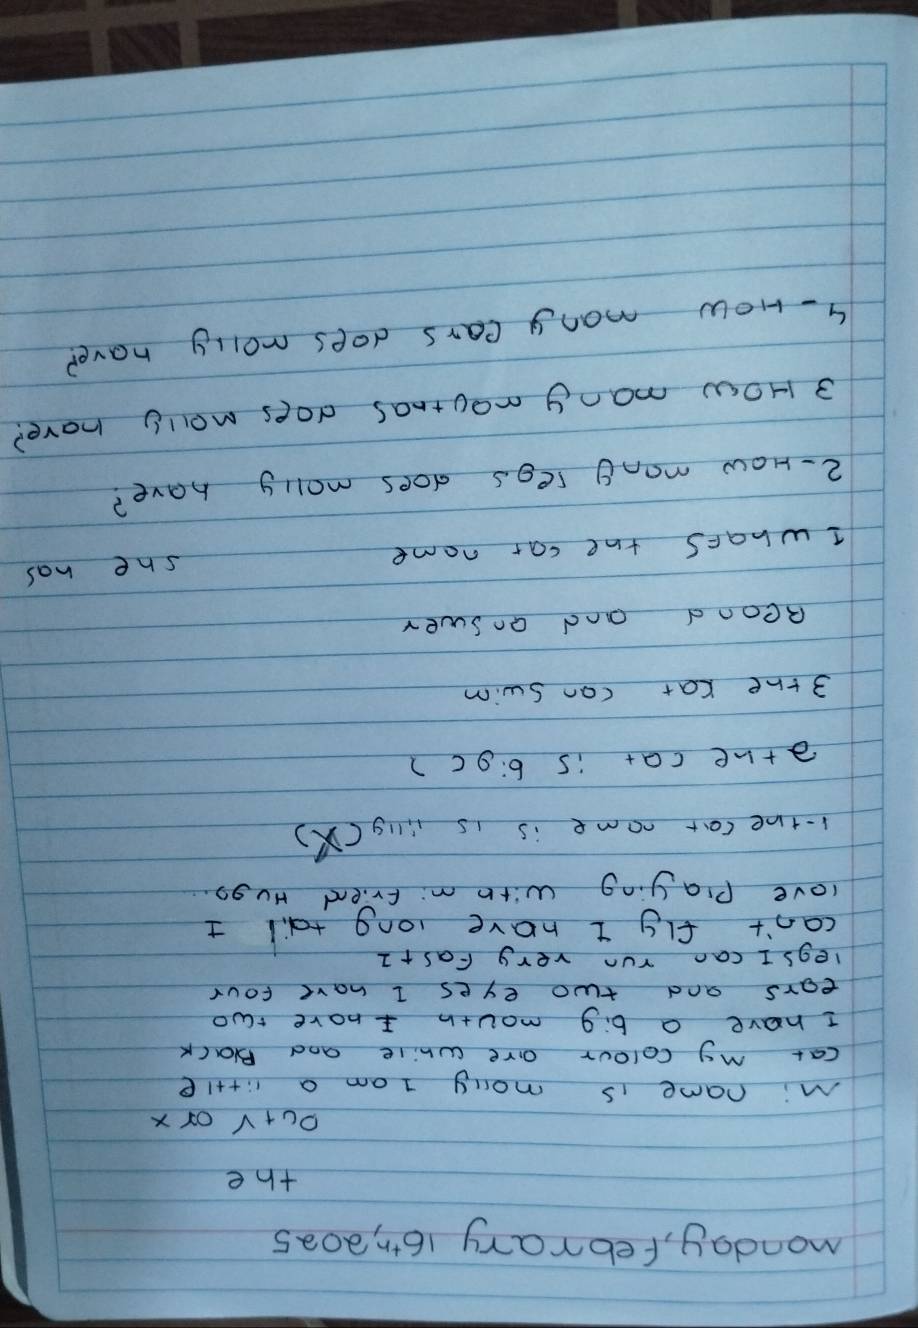 monday, Febrary 16th, 2025
the
Put √ or x
Mi name is molly I am a little
cat my colour are while and Black
I have a big mouth I have two
ears and two eyes I have Four
legs I can run very Fast I
can't fly I have long tail I
love Playing with mi Friend Hugo...
1-the cat name is is lilly (X)
2 the cat is big ( )
3 the kat can swim
Reand and answer
1 whats the cat name she has
2-How many legs does molly have?
3 How many mouthas does molly have?
4-How many ears does molly have?